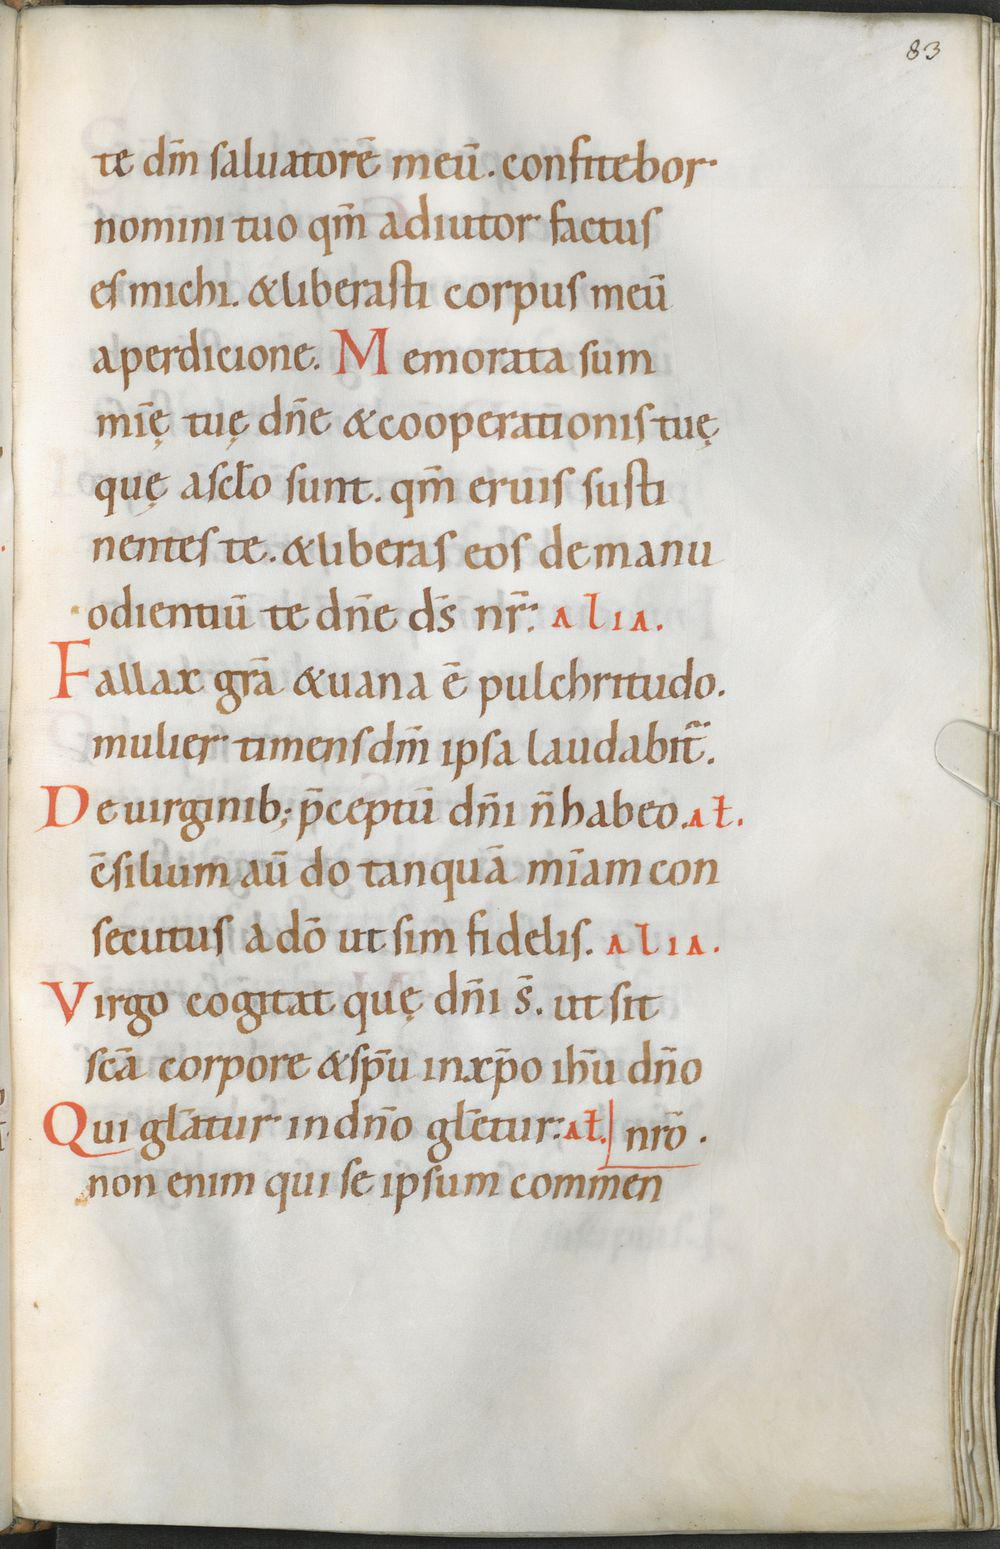 83
te dm̄ saluatorē meū. confitebor
nomini tuo qm̄ adiutor factus
es michi. & liberasti corpus meū
a perdicione. Memorata sum
mīę tuę dn̄e & cooperationis tuę
quę a sclo sunt. qm̄ eruis susti
nentes te. & liberas eos de manu
odientiū te dn̄e ds̄ nr̄. alia.
Fallax gr̄a & uana ē pulchritudo.
mulier timens dm̄ ipsa laudabit᷑.
De uirginib; p̄ceptū dn̄i n̄ habeo. aƚ.
c̄silium aū do tanquā mīam con
secutus a dō ut sim fidelis. alia.
Virgo cogitat quę dn̄i s̄. ut sit
sc̄a corpore & sp̄u in xp̄o ih̄u dn̄o
Qui gƚatur in dn̄o gƚetur. aƚ. nr̄o.
non enim qui se ipsum commen